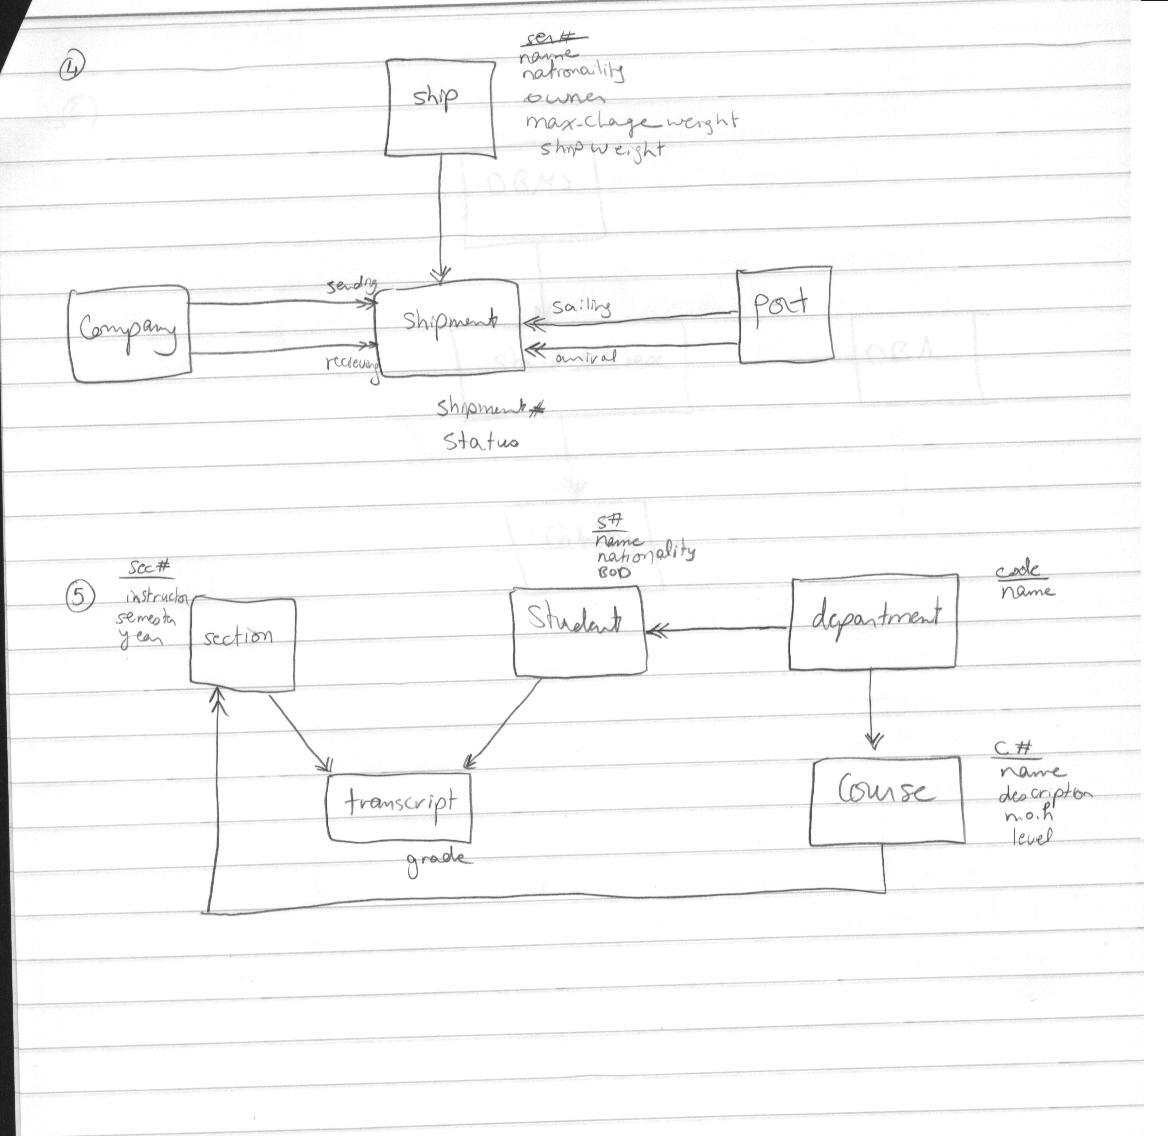 4
ser#
name
nationaility
owner
max-chage weight
ship weight
ship
DBMS
sending
Company
Shipment
sailing
port
recieving
arrival
DBA
Shipment#
Status
5
sec#
instructor
semester
year
section
s#
name
nationality
BOD
Student
department
code
name
transcript
grade
Course
C#
name
description
n.o.h
level